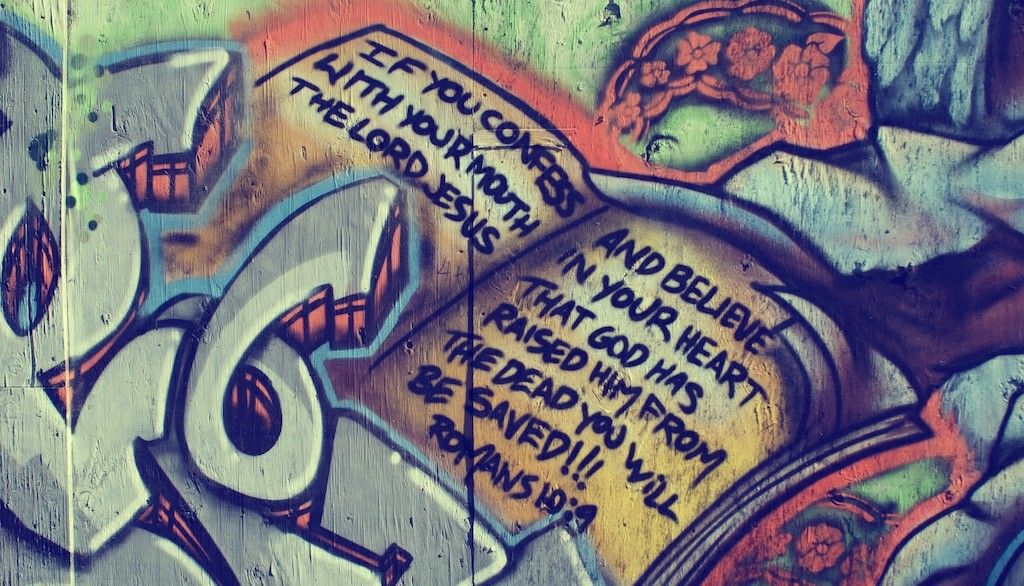 IF YOU CONFESS
WITH YOUR MOUTH
THE LORD JESUS
AND BELIEVE
IN YOUR HEART
THAT GOD HAS
RAISED HIM FROM
THE DEAD YOU WILL
BE SAVED!!!
ROMANS 10:9